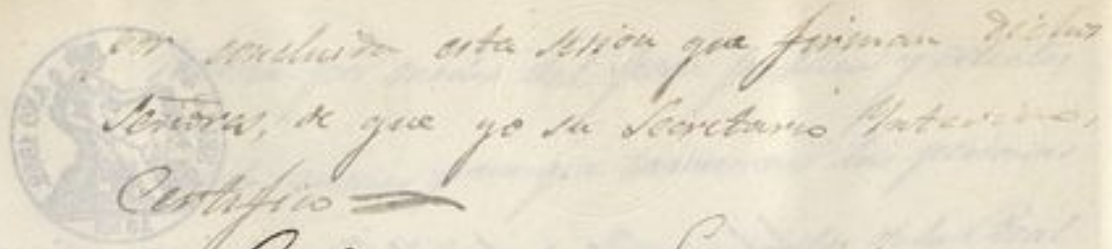 por concluida esta sesion que firman dichos
Señores, de que yo su Secretario Interino,
Certifico